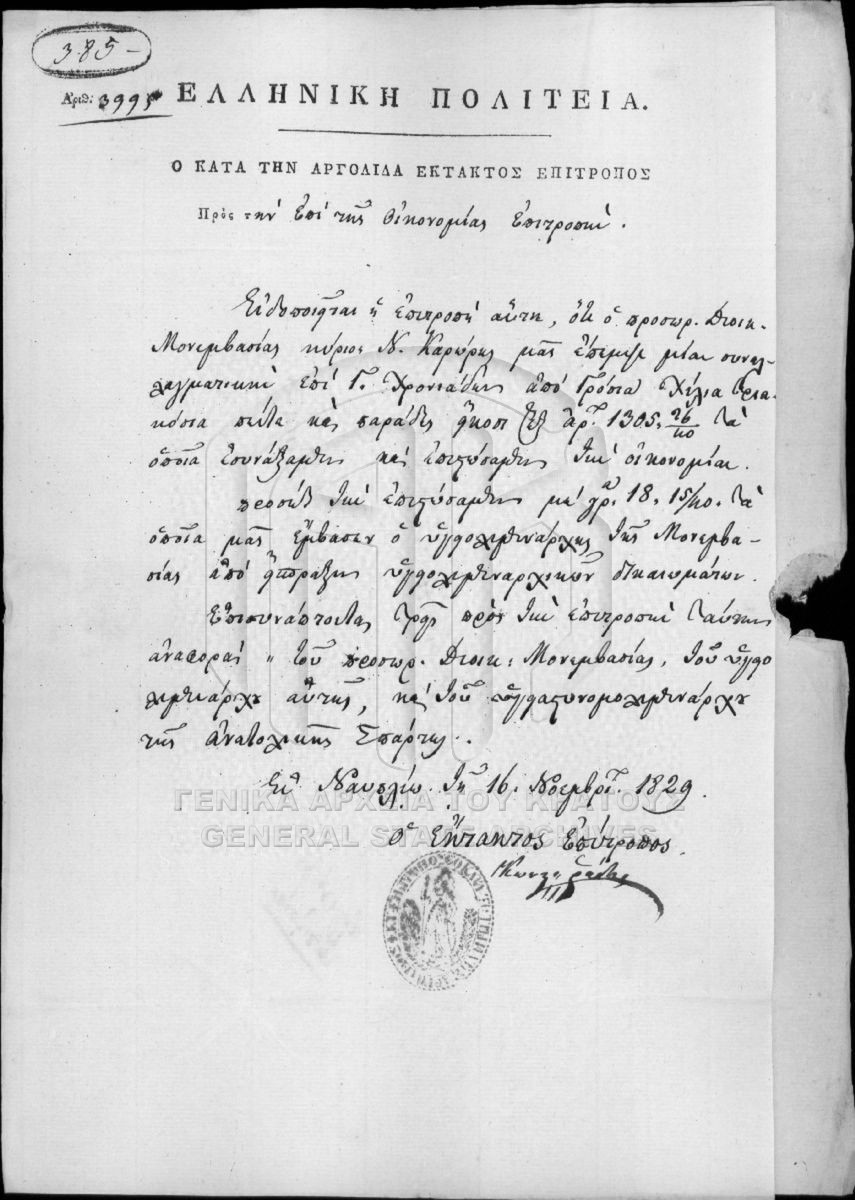 385-
Αριθ: 3995
ΕΛΛΗΝΙΚΗ ΠΟΛΙΤΕΙΑ.
Ο ΚΑΤΑ ΤΗΝ ΑΡΓΟΛΙΔΑ ΕΚΤΑΚΤΟΣ ΕΠΙΤΡΟΠΟΣ
Πρὸς τὴν Ἐπὶ τῆς Οἰκονομίας Ἐπιτροπὴν.
Εἰδοποιεῖται ἡ ἐπιτροπὴ αὕτη, ὅτι ὁ προσωρ. Διοικ.
Μονεμβασίας κύριος Ν. Καρώρης μᾶς ἔπεμψε μίαν συναλ-
λαγματικὴν ἐπὶ Γ. Χρονιάδην ἀπὸ Γρόσια χίλια τρια-
κόσια πέντε καὶ παράδες εἴκοσι ἓξ ἀρ. 1305. 26/40 τὰ
ὁποῖα ἐσυνάξαμεν καὶ ἐπιστώσαμεν τὴν οἰκονομίαν.
προσέτι τὴν ἐπιστώσαμεν μὲ γρ. 18. 15/40. τὰ
ὁποῖα μᾶς ἔμβασεν ὁ ὑγειολιμενάρχης τῆς Μονεμβα-
σίας ἀπὸ εἴσπραξιν ὑγειολιμεναρχικῶν δικαιωμάτων.
Ἐπισυνάπτονται τρεῖς πρὸς τὴν ἐπιτροπὴν ταύτην
ἀναφοραὶ „ τοῦ προσωρ. Διοικ: Μονεμβασίας, τοῦ ὑγειο
λιμενάρχου αὐτῆς, καὶ τοῦ ὑγειαστυνομολιμενάρχου
τῆς ἀνατολικῆς Σπάρτης.
Ἐν Ναυπλίῳ τῇ 16. Νοεμβρ. 1829.
Ὁ Ἔκτακτος Ἐπίτροπος
ΓΕΝΙΚΑ ΑΡΧΕΙΑ ΤΟΥ ΚΡΑΤΟΥΣ
GENERAL STATE ARCHIVES